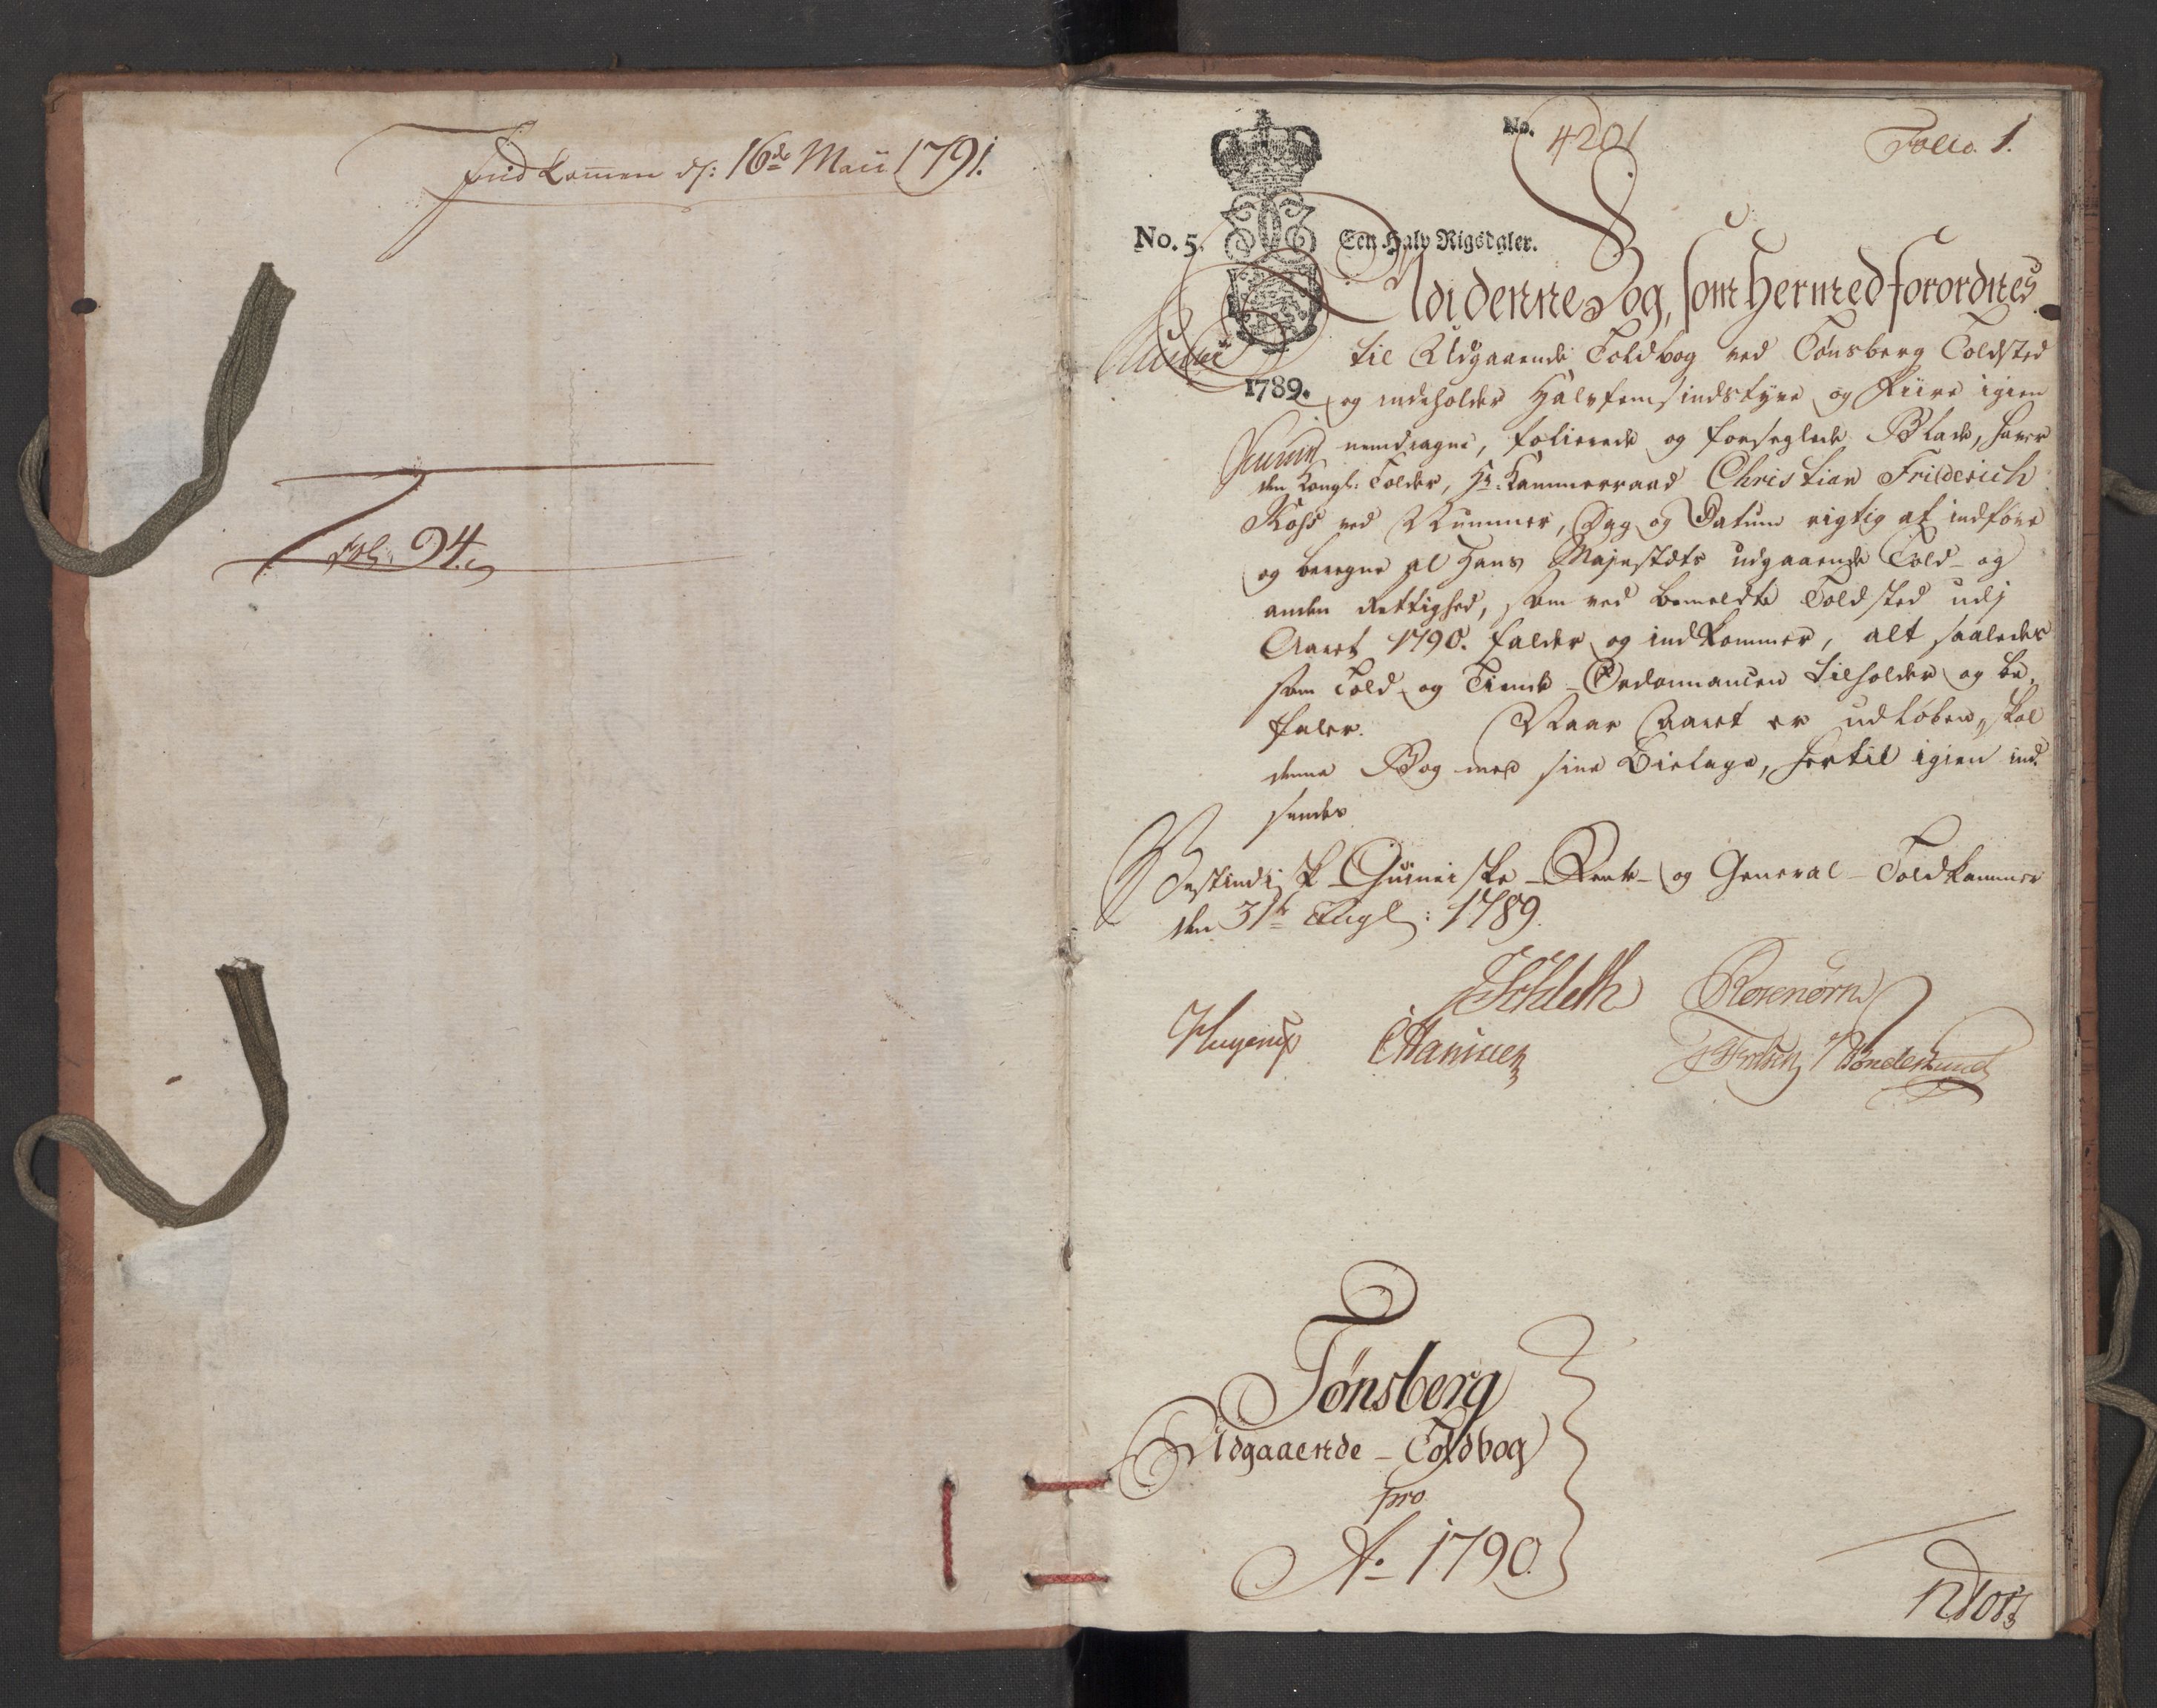 Ind kommen d: 16de Maii 1791.
Fol: 94.
No. 4201
Folio. 1.
No. 5.
Een Halv Rigsdaler.
Udi denne Bog, som hermed forordnes
til Udgaaende Toldbog ved Tønsberg Toldsted
1789. og indeholder Halvfemsindstyve og Fiire igien
nemdragne, folierede og forseglede Blade, haver
den Kongl: Tolder, Hr. Kammerraad Christian Friderich
Ross ved Nummer, Dag og Datum rigtig at indføre
og beregne al Hans Majestæts udgaaende Told- og
anden Rettighed, som ved bemeldte Toldsted udj
Aaret 1790. falder og indkommer, alt saaledes
som Told- og Tiende-Ordonnancen tilholder og be-
faler. Naar Aaret er udløben, skal
denne Bog med sine Bielage, hertil igien ind-
sendes
Vestindisk-Guineiske-Rente- og General-Toldkammer
den 31te Augl: 1789.
Schleth Rosenørn
Hugerup CHansen
Tønsberg
Udgaaende-Toldbog
pro
Ao 1790.